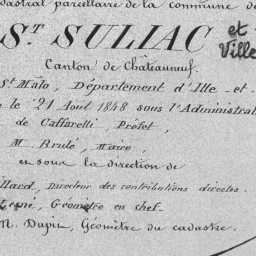 dastral parcellaire de la commune de
ST. SULIAC et
Ville
Canton de Châteauneuf.
St Malo, Département d'Ille - et -
le 21 Aout 1848 sous l'Administrat
de Caffarelli, Préfet,
M. Brulé, Maire,
en sous la direction de
llard, Directeur des contributions directes.
Géomètre en chef.
M. Dupin, Géomètre du cadastre.